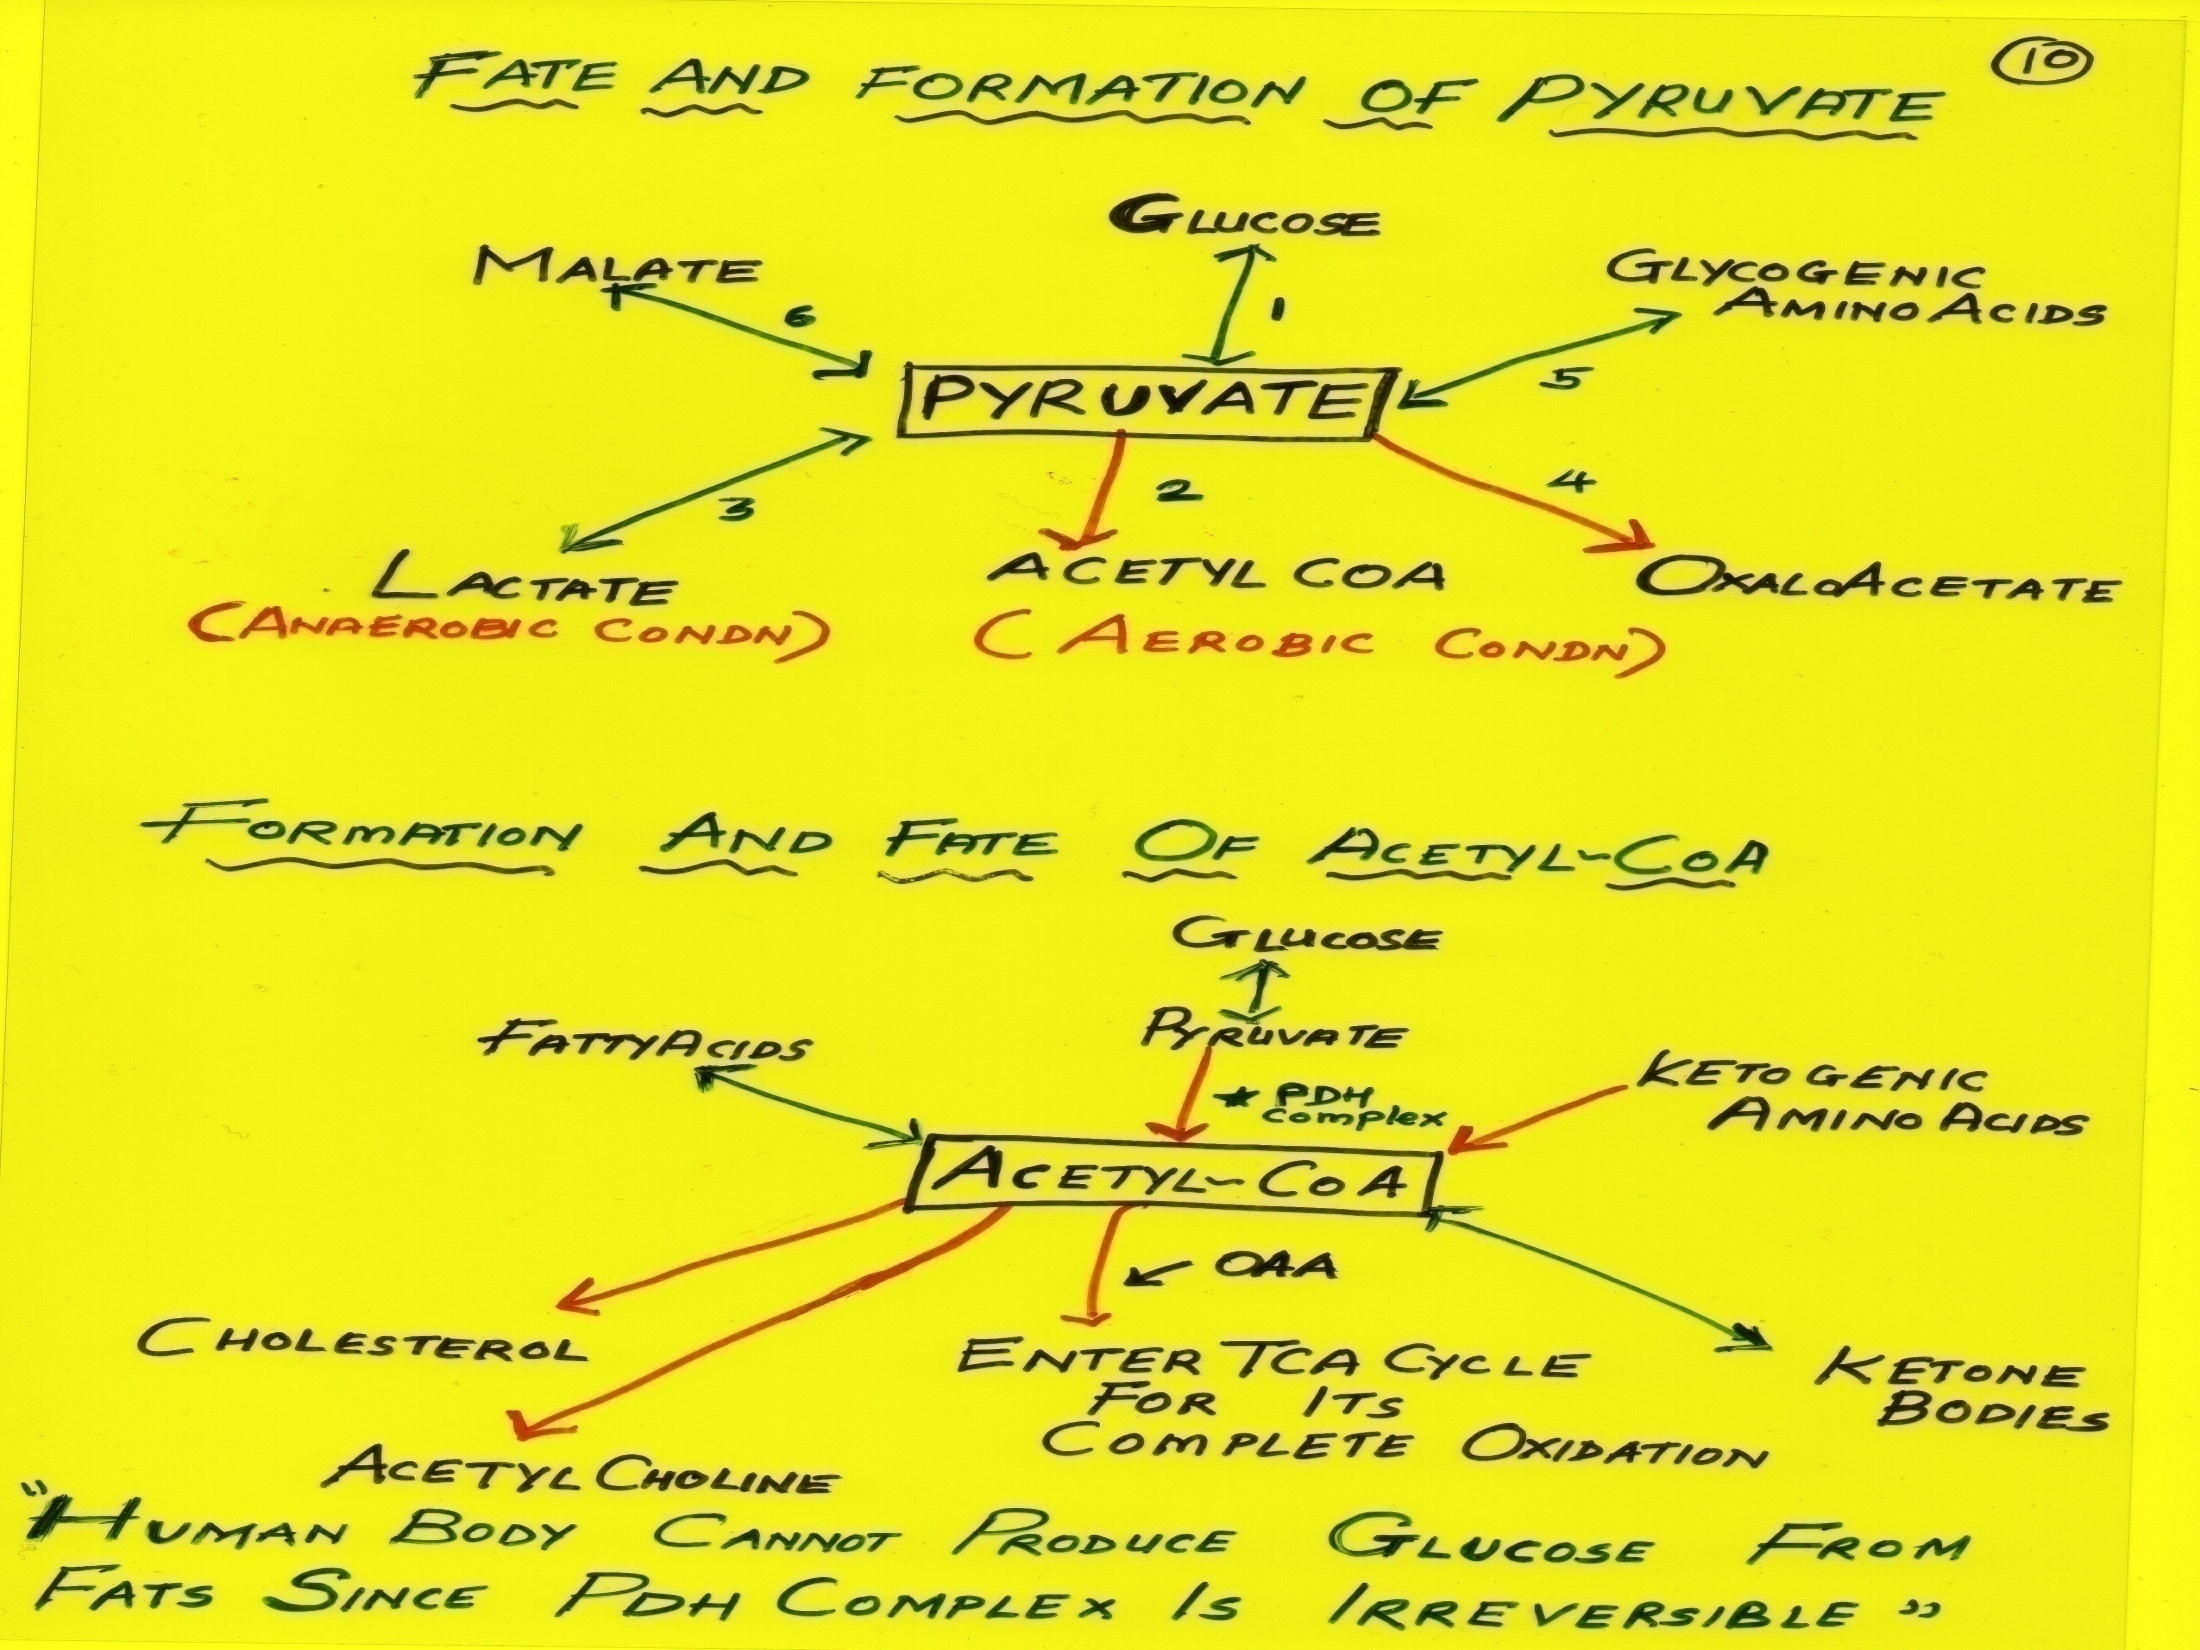 10
FATE AND FORMATION OF PYRUVATE
GLUCOSE
MALATE
GLYCOGENIC
AMINO ACIDS
6
1
5
PYRUVATE
3
2
4
LACTATE
(ANAEROBIC CONDN)
ACETYL COA
(AEROBIC CONDN)
OXALOACETATE
FORMATION AND FATE OF ACETYL-COA
GLUCOSE
FATTY ACIDS
PYRUVATE
* PDH
complex
KETOGENIC
AMINO ACIDS
ACETYL-COA
OAA
CHOLESTEROL
ENTER TCA CYCLE
FOR ITS
COMPLETE OXIDATION
KETONE
BODIES
ACETYL CHOLINE
"HUMAN BODY CANNOT PRODUCE GLUCOSE FROM
FATS SINCE PDH COMPLEX IS IRREVERSIBLE"